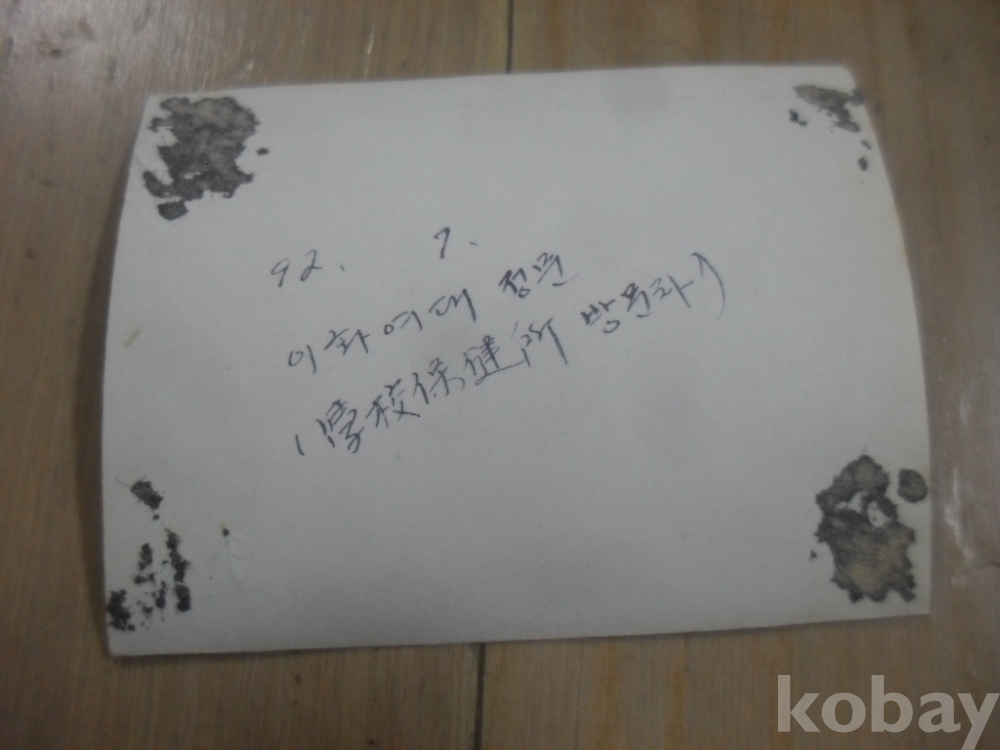 92. 7.
이화여대 정문
(學校保健所 방문차)
kobay